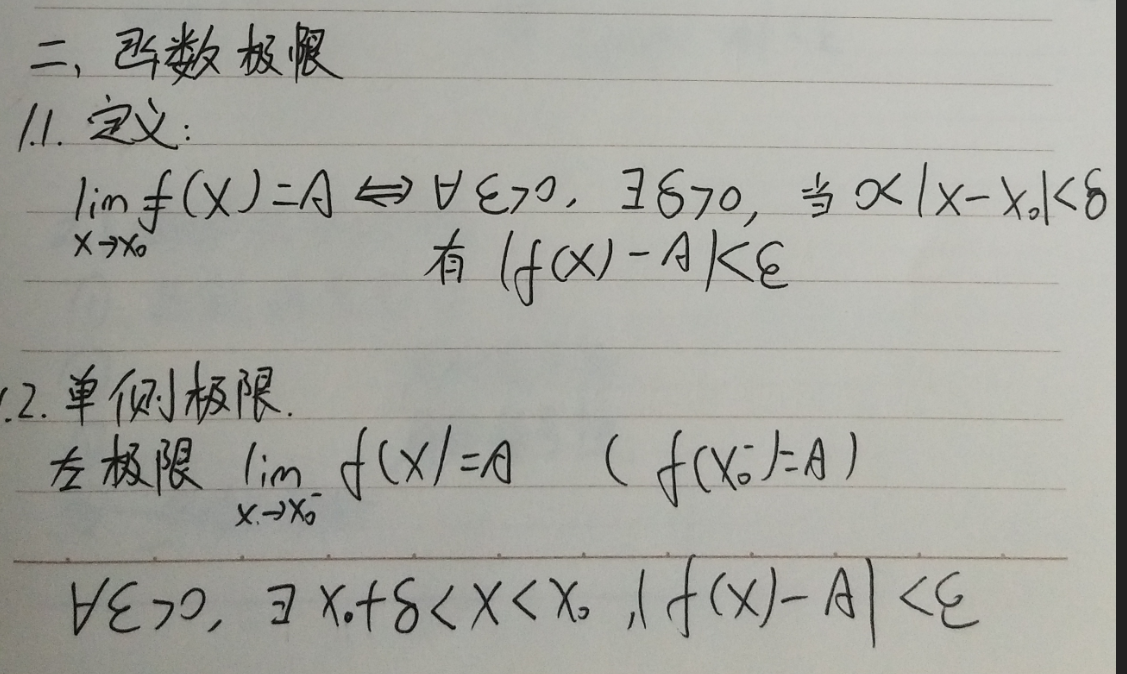 二、函数极限
1.1. 定义:
lim f(x)=A ⇔ ∀ε>0, ∃δ>0, 当 0<|x-x₀|<δ
x→x₀
有 |f(x)-A|<ε
1.2. 单侧极限.
左极限 lim f(x)=A (f(x₀⁻)=A)
x→x₀⁻
∀ε>0, ∃ x₀+δ<x<x₀, |f(x)-A|<ε